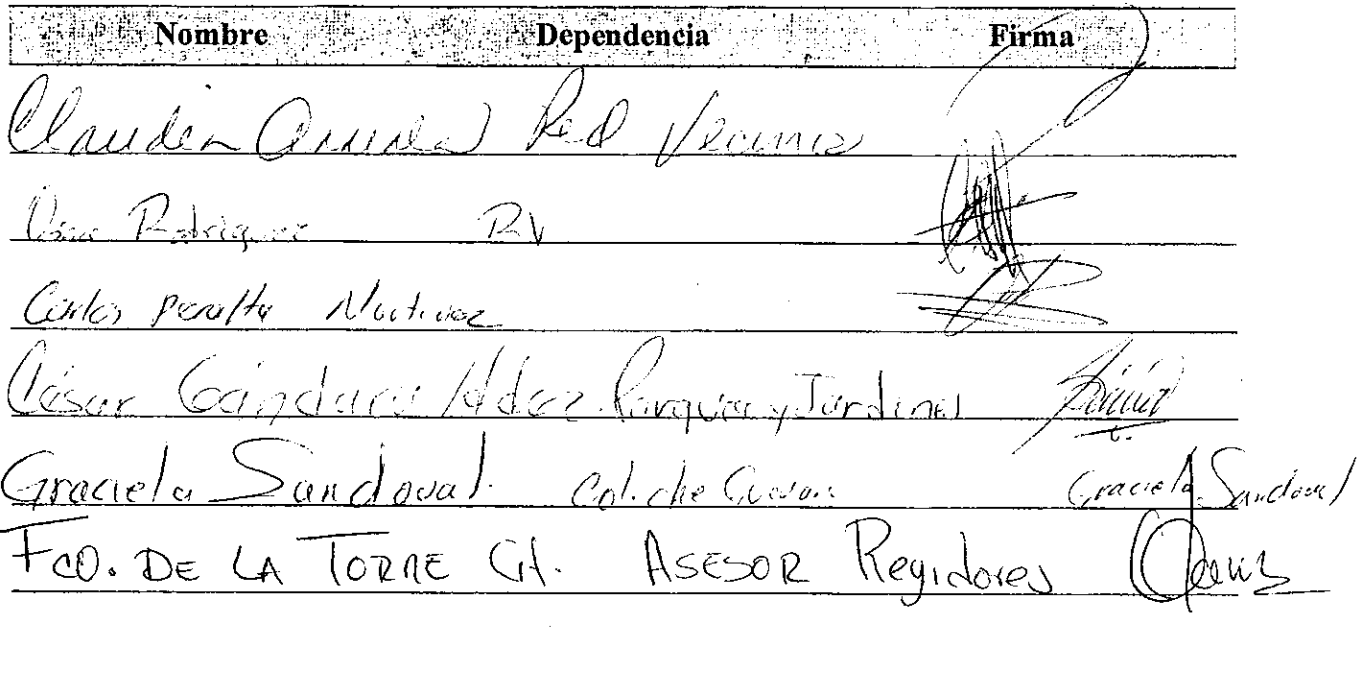 Nombre Dependencia Firma
Claudia Red Vecinos
Rodriguez RV
Carlos Peralta Martinez
César Gándara Hdez. Parques y Jardines
Graciela Sandoval. Col. Graciela Sandoval
FCO. DE LA TORRE CH. ASESOR Regidores